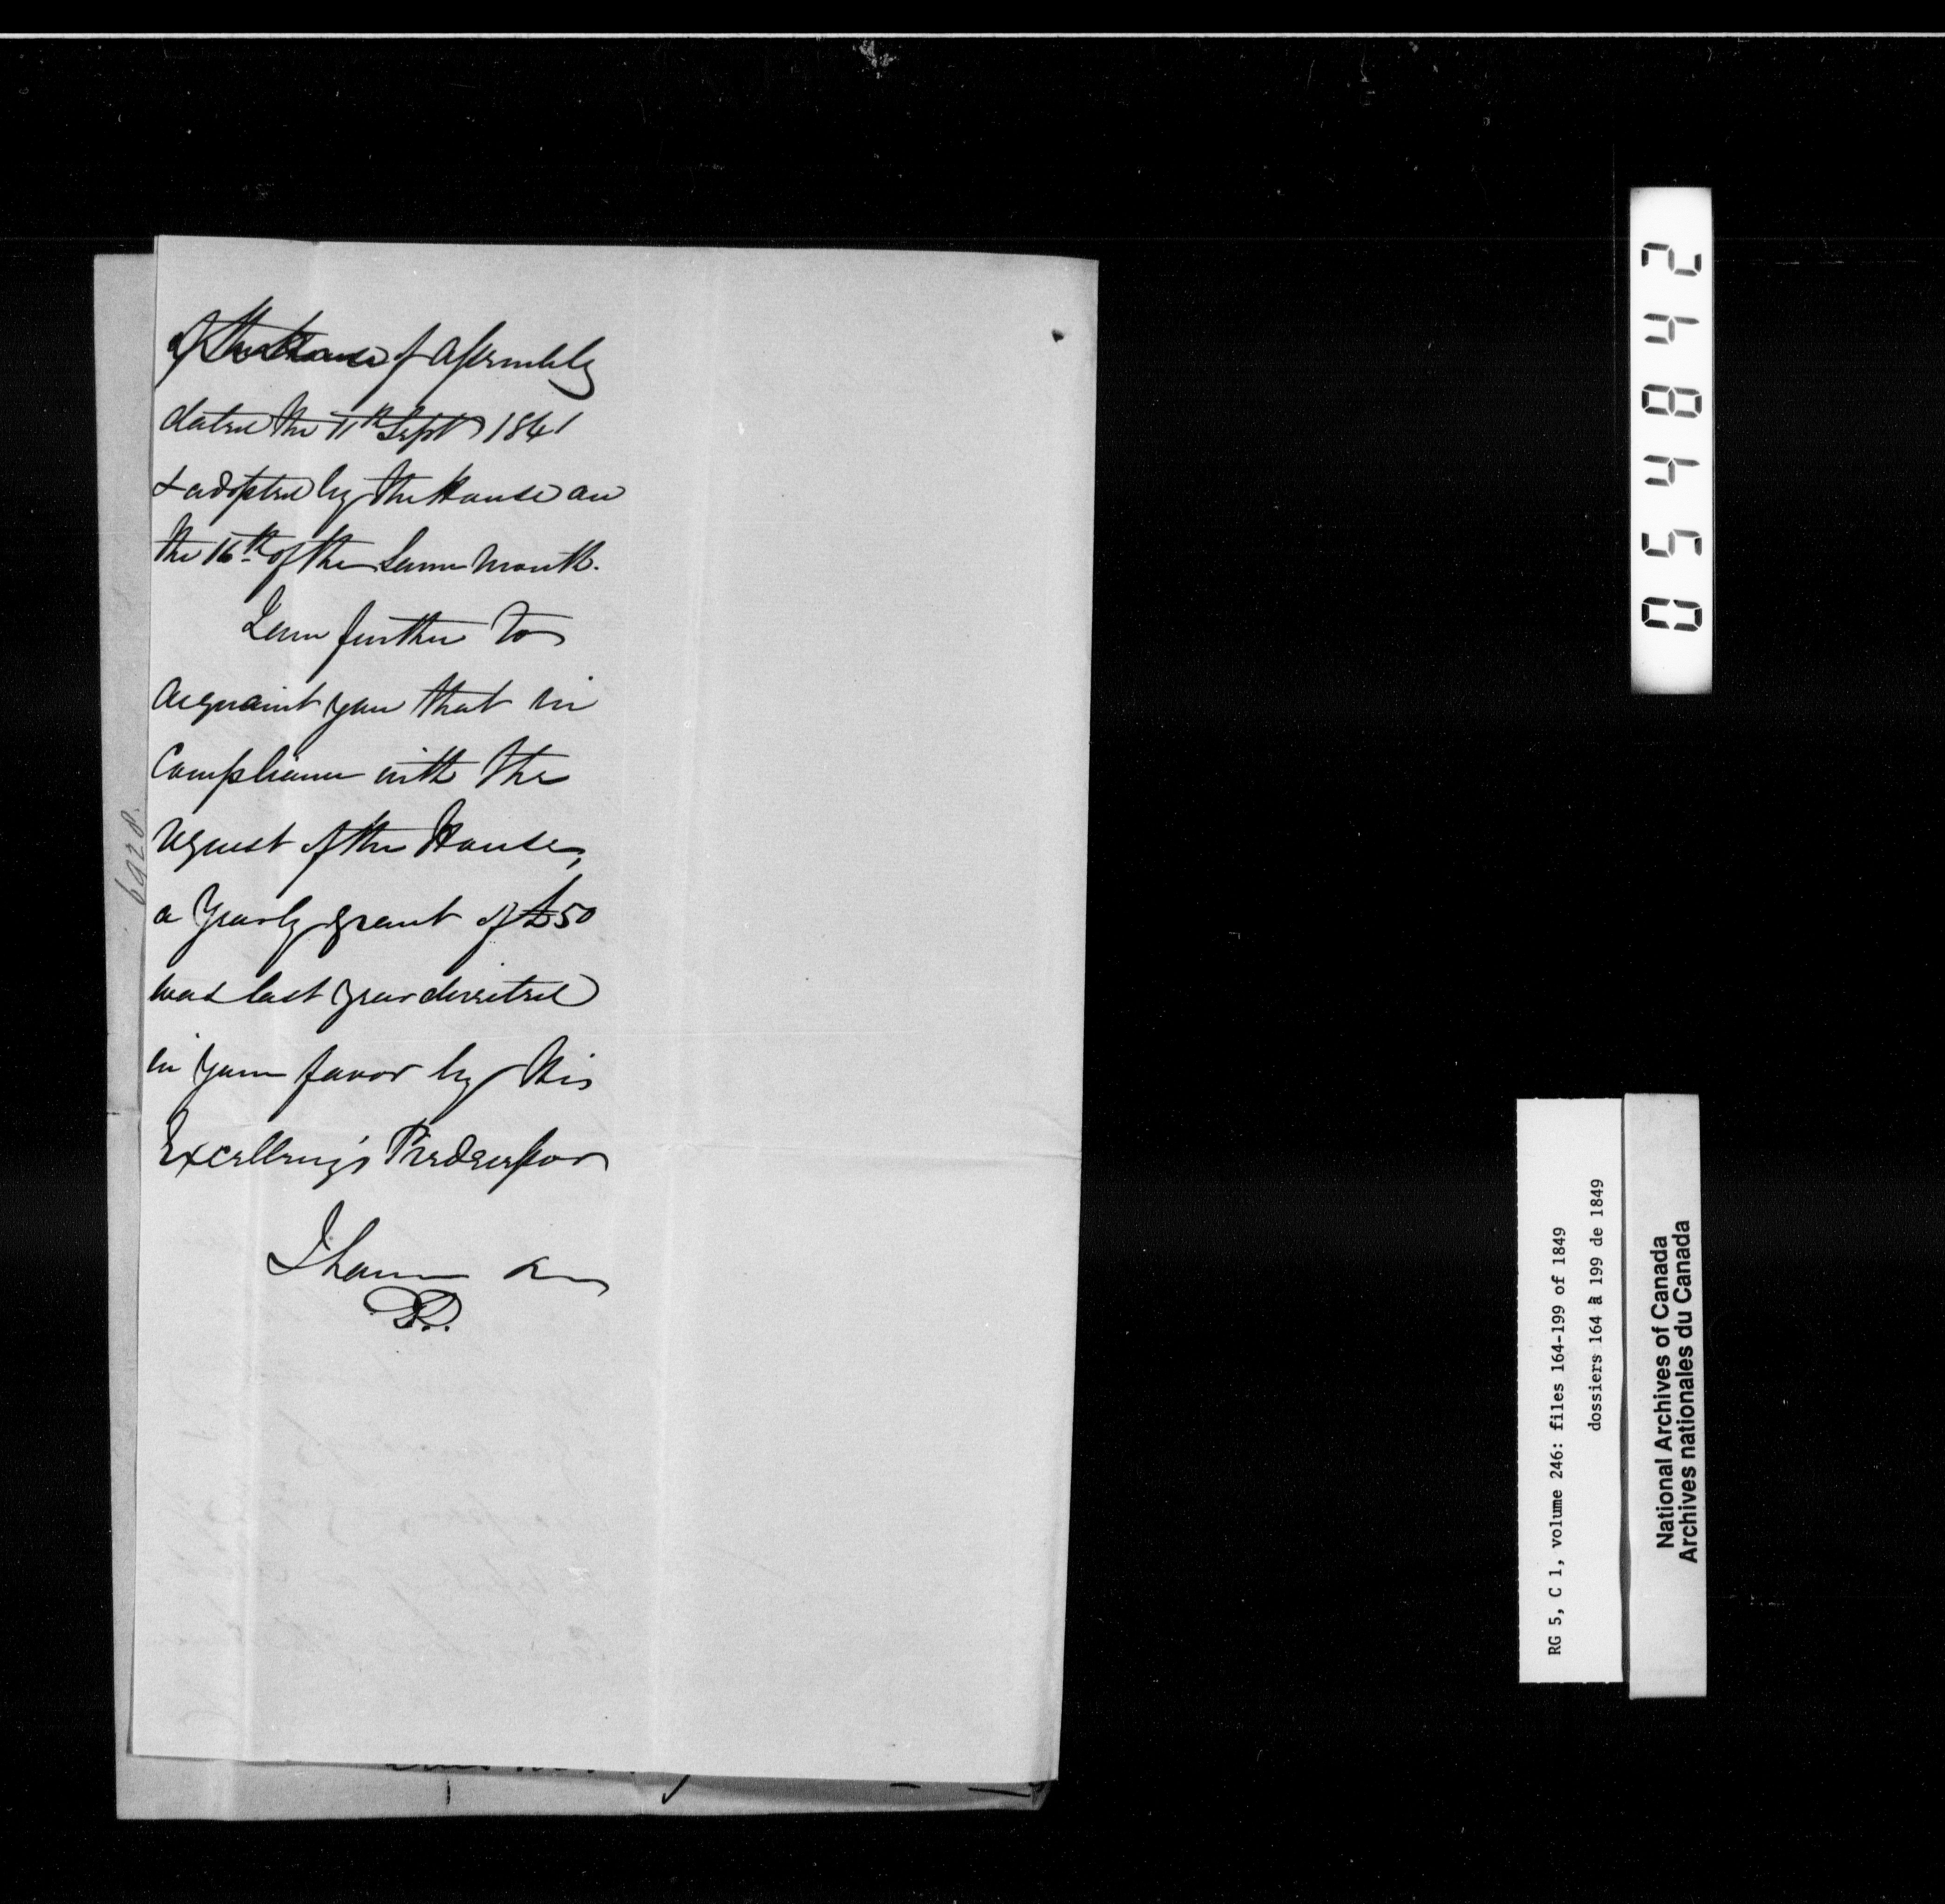 of the House of Assembly
dated the 11th Sept 1841
& adopted by the House on
the 16th of the same month.
I am further to
acquaint you that in
Compliance with the
request of the House,
a Yearly grant of £50
was last year directed
in your favor by His
Excellency's Predecessor
I have &c
6928.
054842
RG 5, C 1, volume 246: files 164-199 of 1849
dossiers 164 à 199 de 1849
National Archives of Canada
Archives nationales du Canada